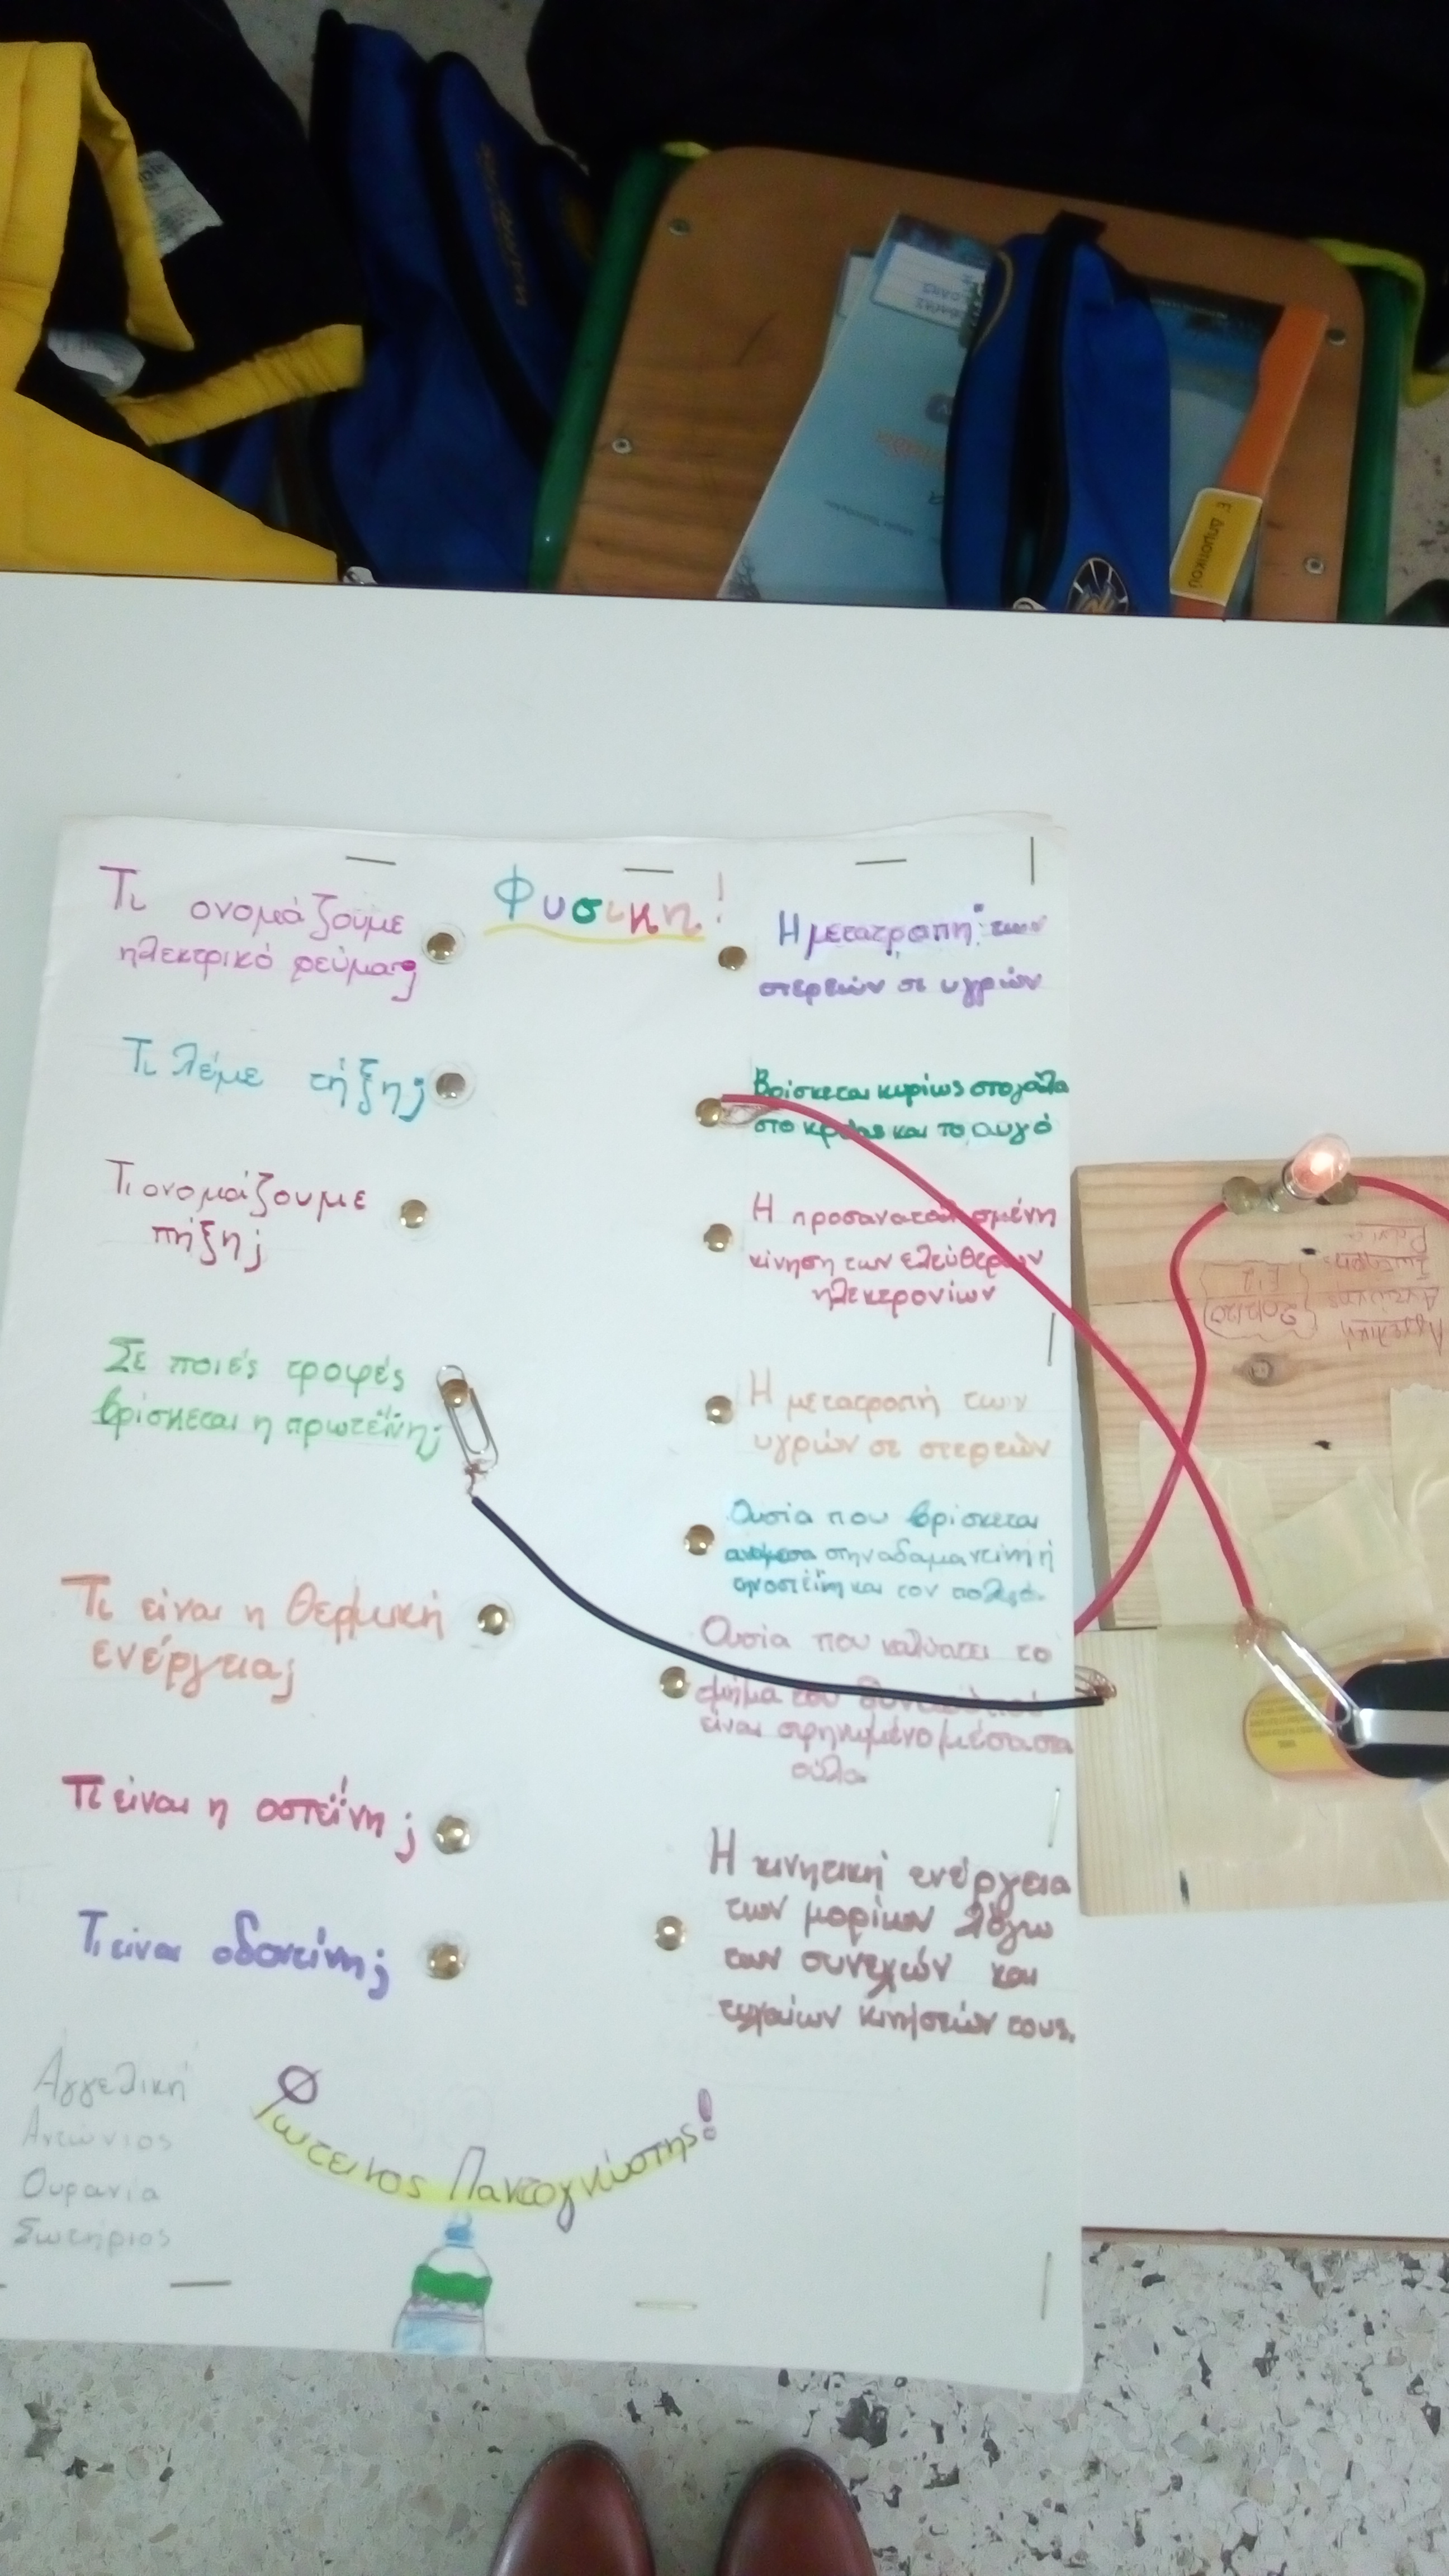 Φυσικη!
Τι ονομάζουμε
ηλεκτρικό ρεύμα;
Τι λέμε τήξη;
Τι ονομάζουμε
πήξη;
Σε ποιές τροφές
βρίσκεται η πρωτεΐνη;
Τι είναι η θερμική
ενέργεια;
Τι είναι η οστεΐνη;
Τι είναι οδοντίνη;
Η μετατροπή των
στερεών σε υγρών
Βρίσκεται κυρίως στο γάλα
στο κρέας και το αυγό
Η προσανατολισμένη
κίνηση των ελεύθερων
ηλεκτρονίων
Η μετατροπή των
υγρών σε στερεών
Ουσία που βρίσκεται
ανάμεσα στην αδαμαντίνη ή
και τον πολφό
Ουσία που καλύπτει το
τμήμα του δοντιού που
είναι σφηνωμένο μέσα στα
ούλα
Η κινητική ενέργεια
των μορίων λόγω
των συνεχών και
τυχαίων κινήσεών τους.
Αγγελική
Αντώνιος
Ουρανία
Σωτήριος
Φωτεινος Παντογνώστης!
Ε' Δημοτικού
Αγγελική
Αντώνης
Σωτήρης
Ε'2